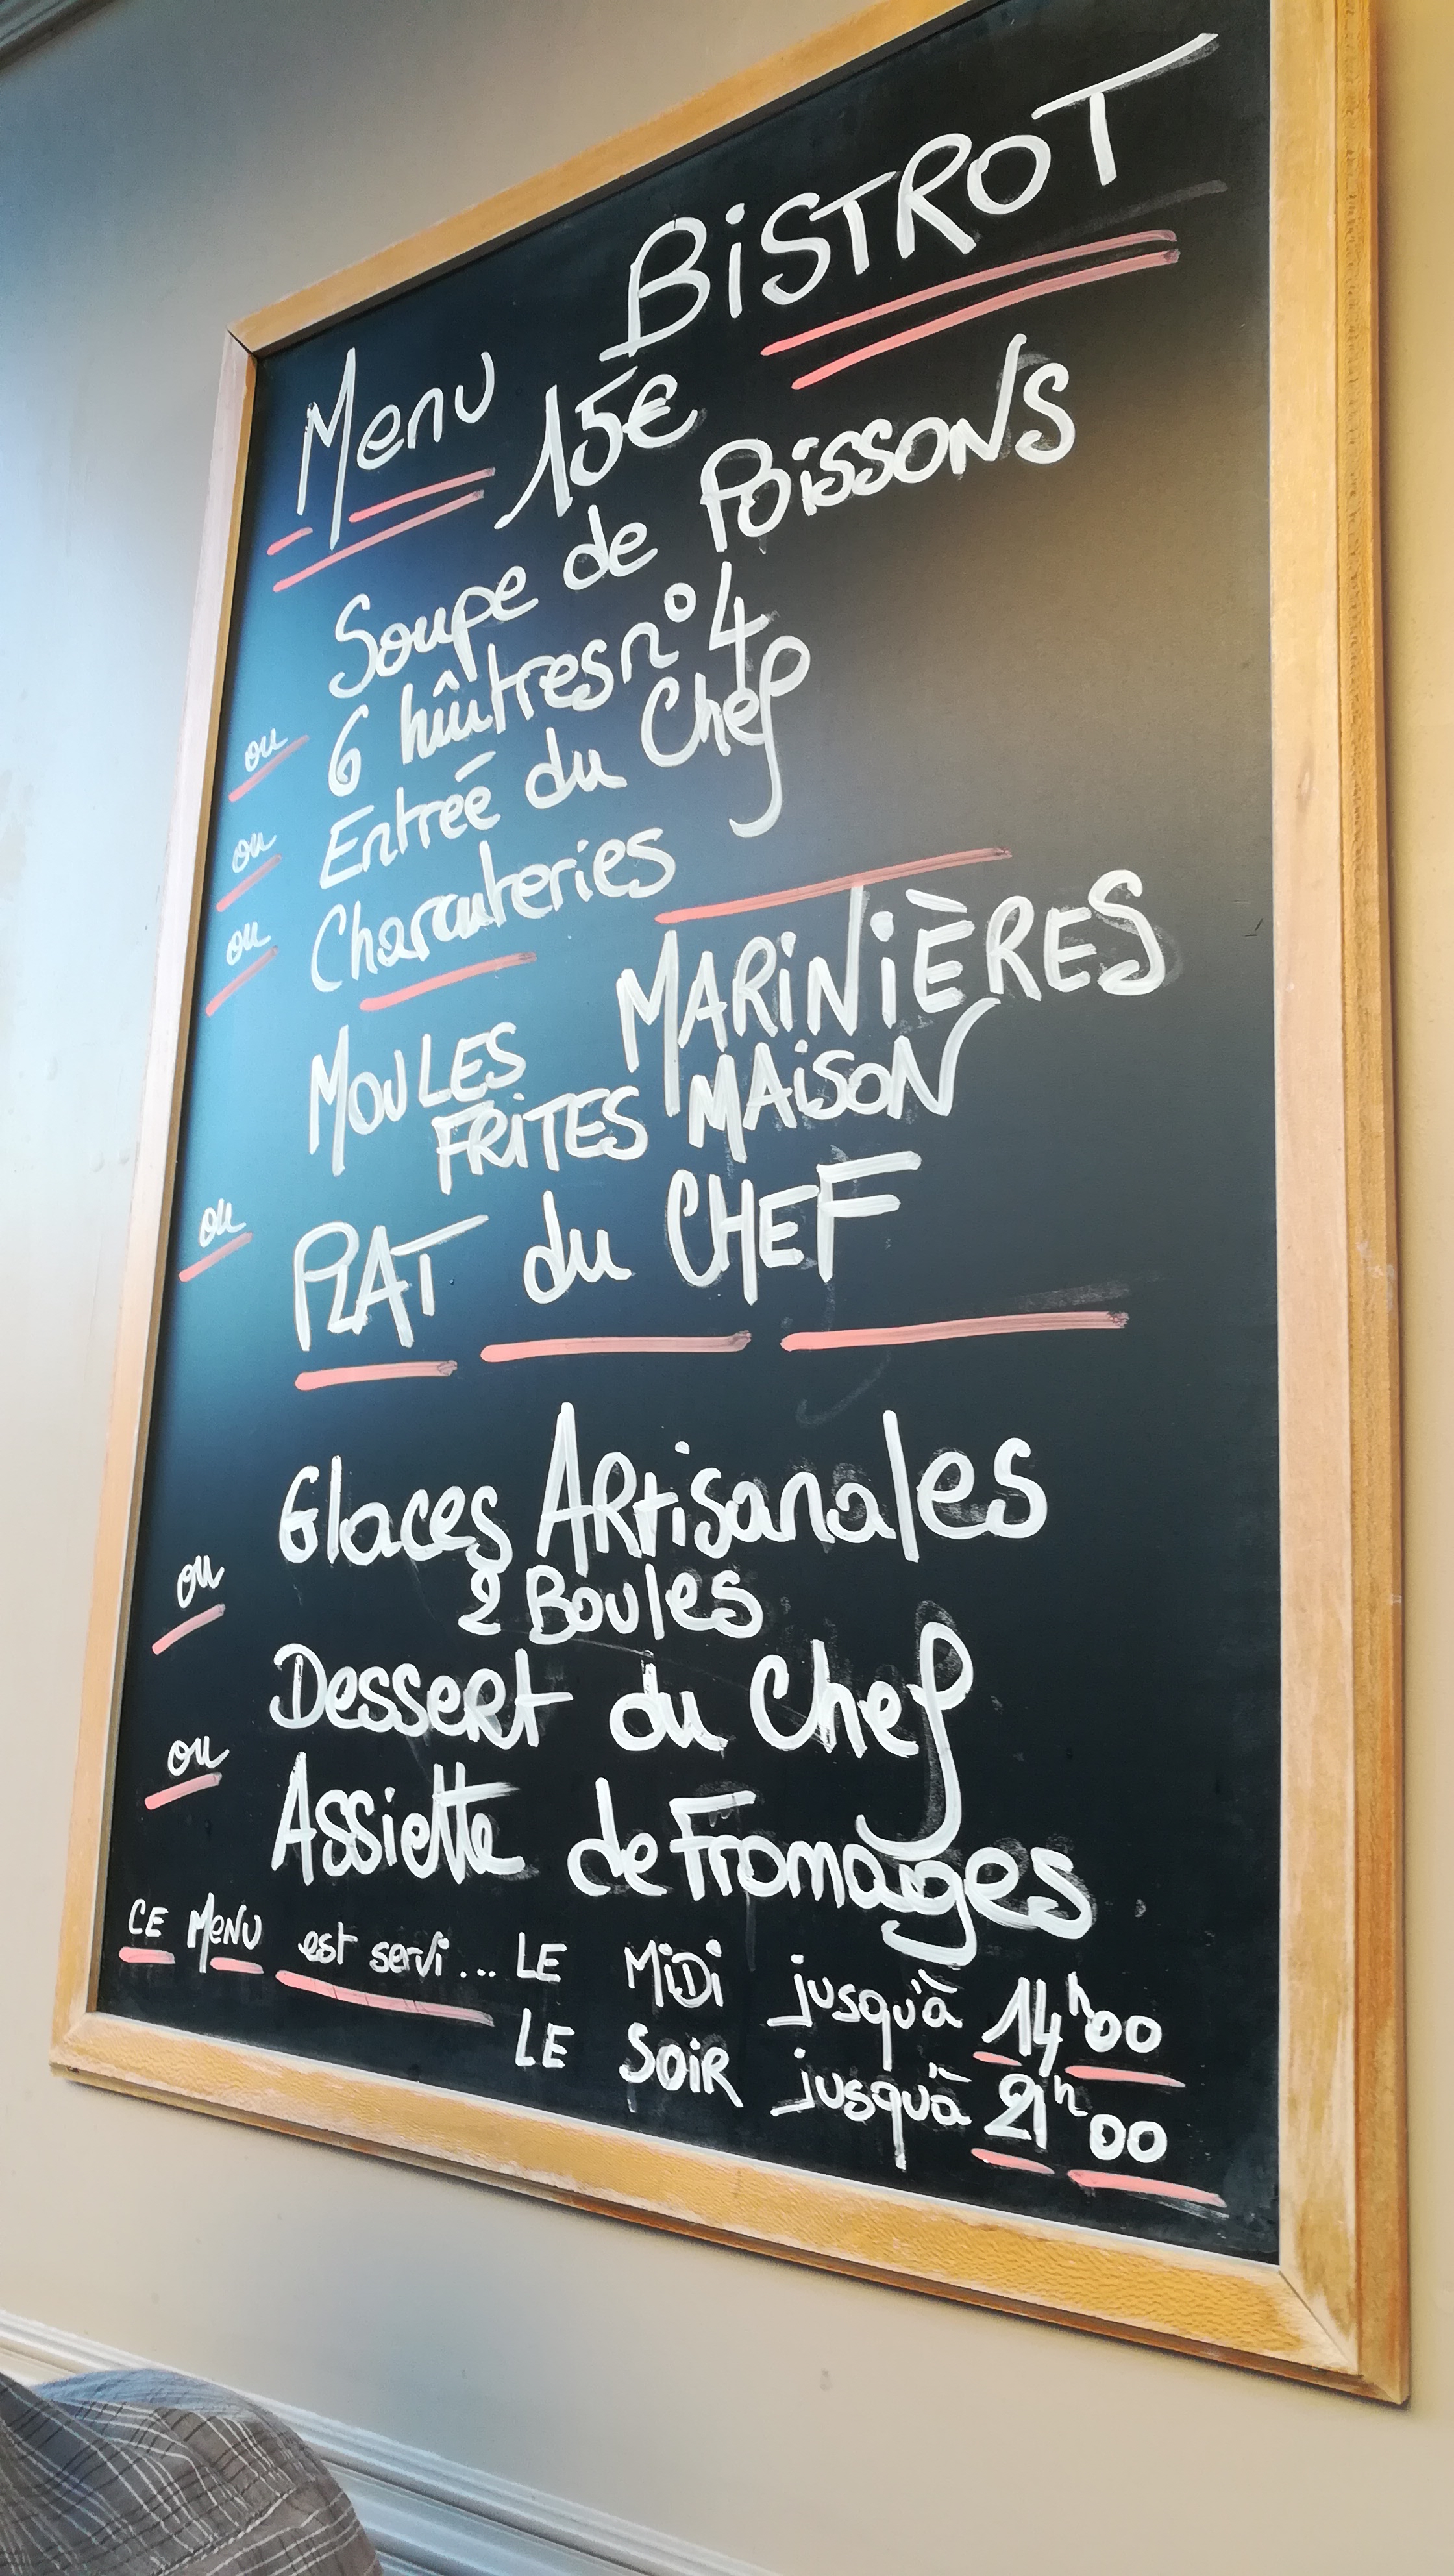 Menu BiSTROT
15€
Soupe de Poissons
ou 6 huîtres n°4
ou Entreé du Chef
ou Charcuteries
MOULES MARiNiÈRES
FRiTES MAiSON
ou PLAT du CHEF
Glaces ARtisanales
2 Boules
ou Dessert du Chef
ou Assiette de Fromages
CE MENU est servi... LE MiDi jusqu'à 14h00
LE SOiR jusqu'à 21h00